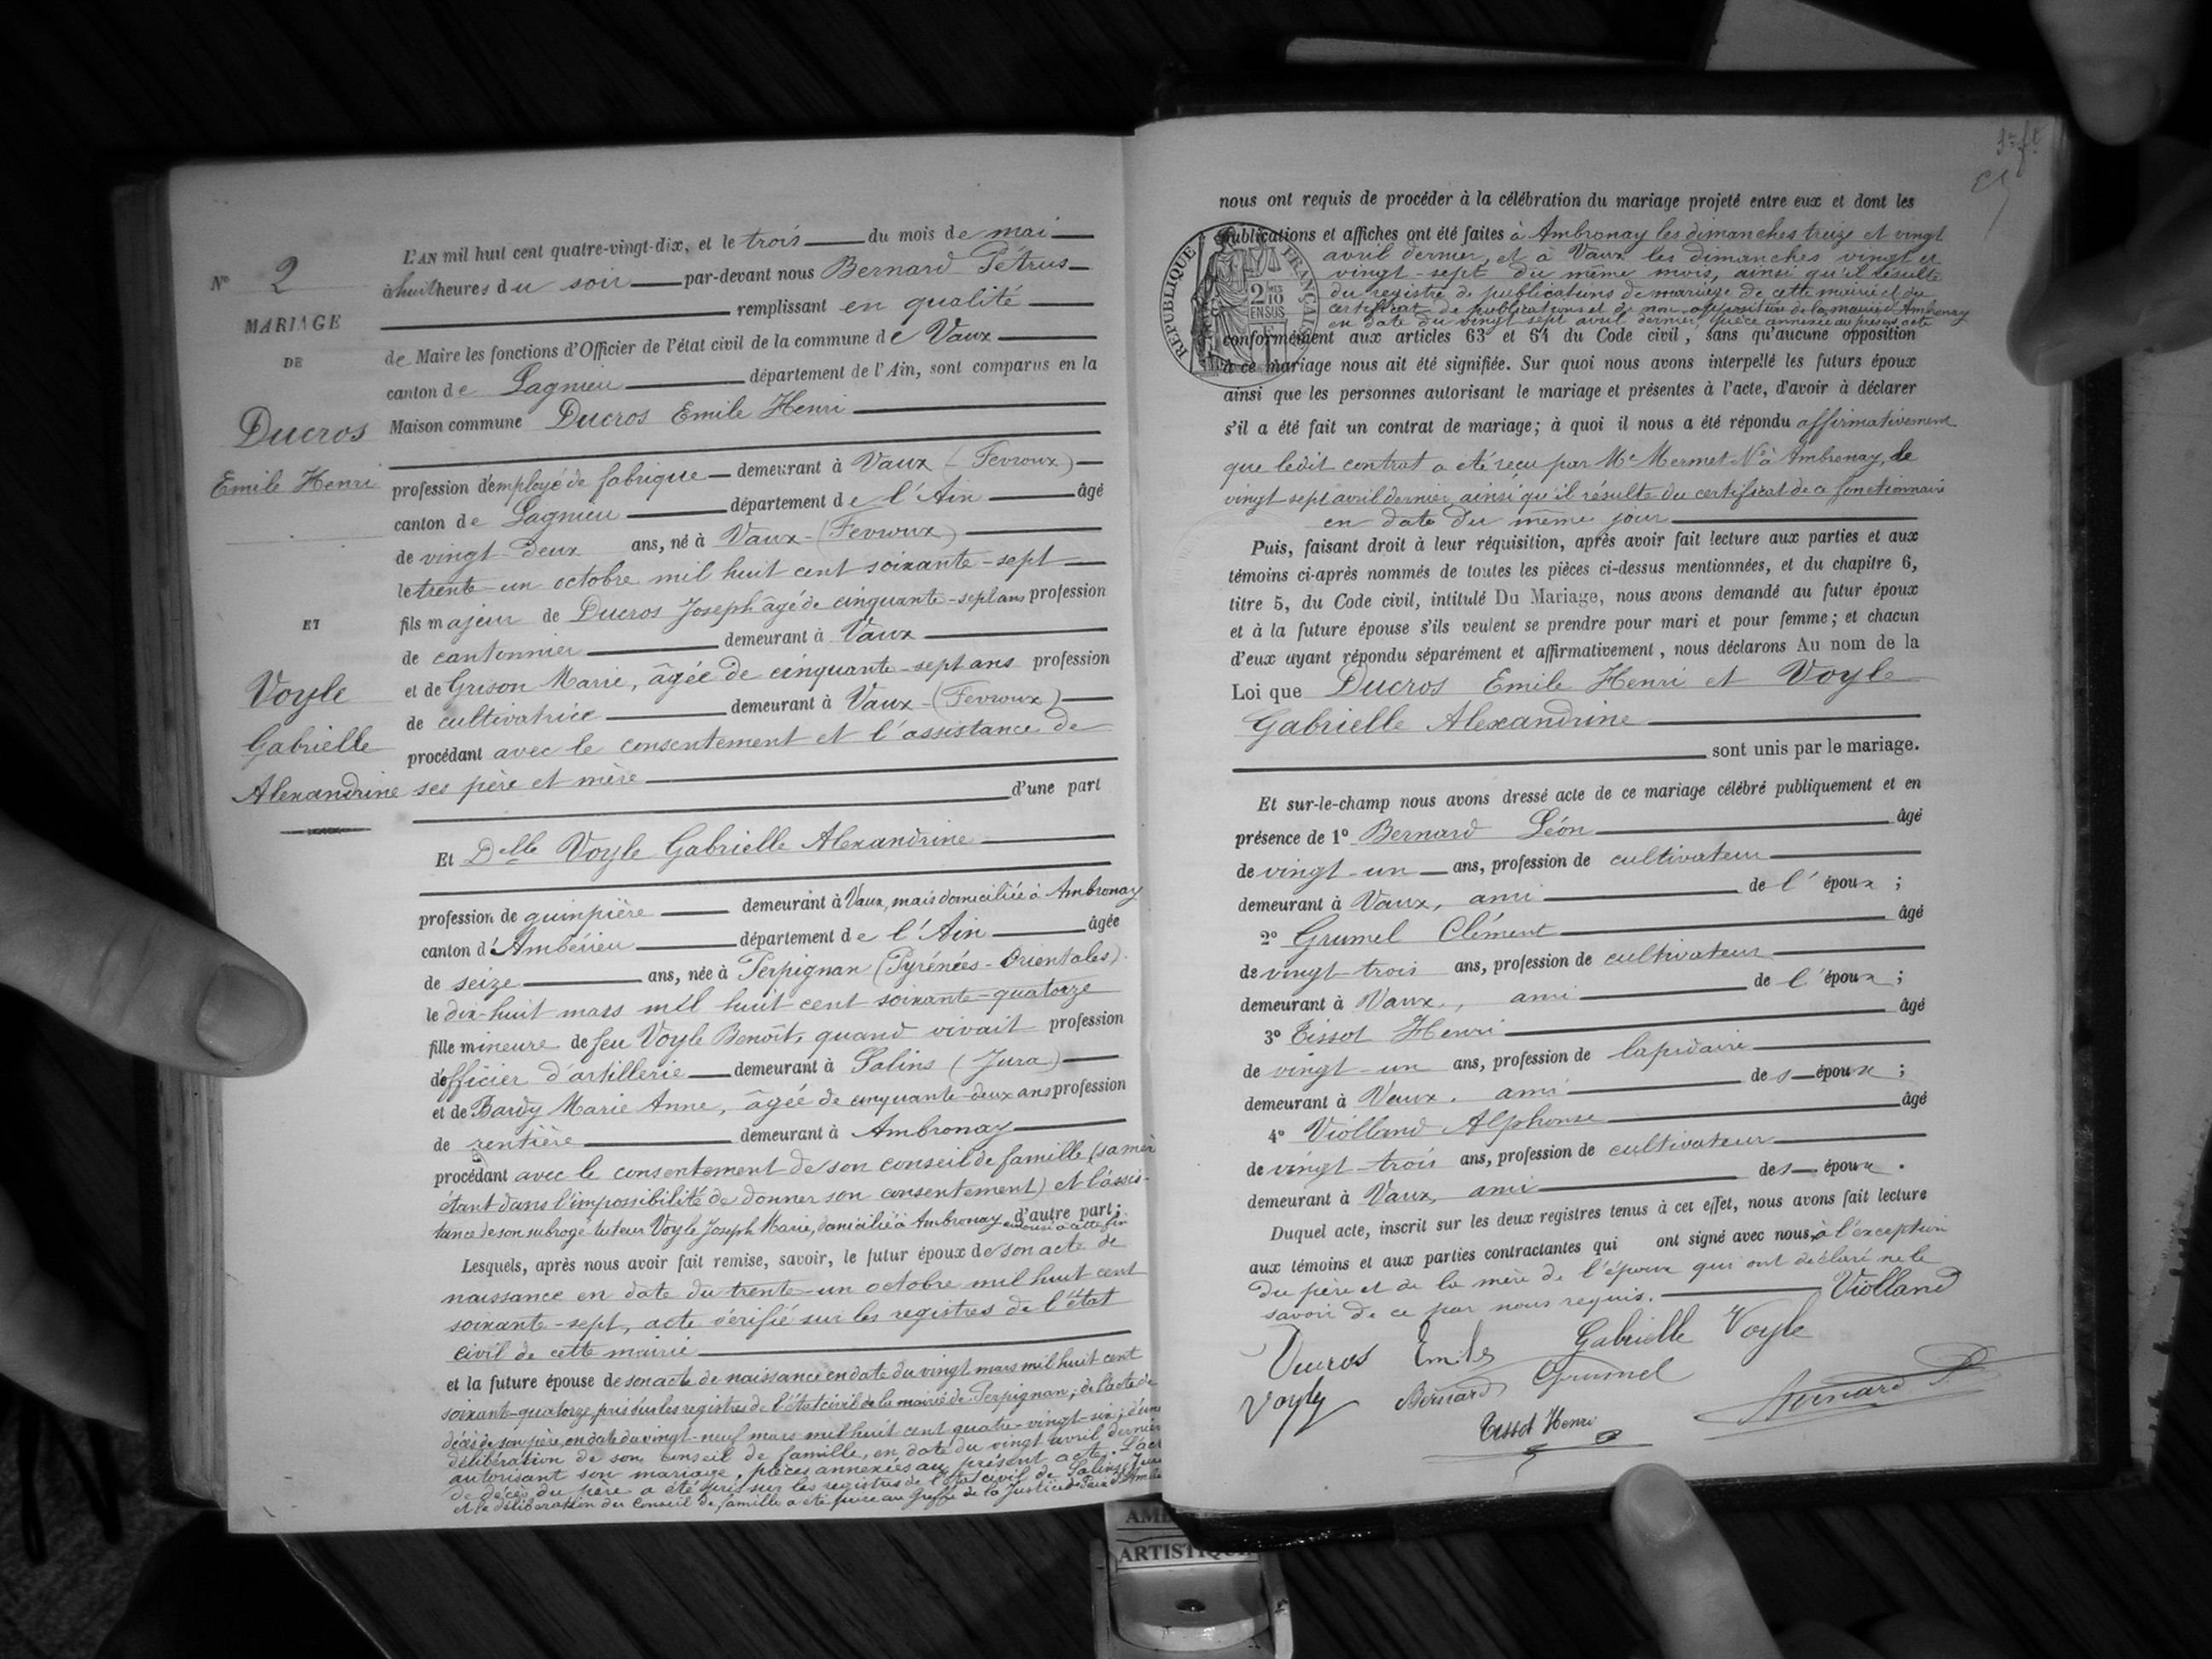 N° 2
MARIAGE
DE
Ducros
Emile Henri
ET
Voyle
Gabrielle
Alexandrine
L'AN mil huit cent quatre-vingt-dix, et le trois du mois de mai
à huit heures du soir par-devant nous Bernard Pétrus
remplissant en qualité
de Maire les fonctions d'Officier de l'état civil de la commune de Vaux
canton de Lagnieu département de l'Ain, sont comparus en la
Maison commune Ducros Emile Henri
profession d'employé de fabrique demeurant à Vaux (Fevroux)
canton de Lagnieu département de l'Ain âgé
de vingt-deux ans, né à Vaux-(Fevroux)
le trente-un octobre mil huit cent soixante-sept
fils majeur de Ducros Joseph âgé de cinquante-sept ans profession
de cantonnier demeurant à Vaux
et de Grison Marie, âgée de cinquante-sept ans profession
de cultivatrice demeurant à Vaux-(Fevroux)
procédant avec le consentement et l'assistance de
ses père et mère
d'une part
Et Delle Voyle Gabrielle Alexandrine
profession de guimpière demeurant à Vaux, mais domiciliée à Ambronay
canton d'Ambérieu département de l'Ain âgée
de seize ans, née à Perpignan (Pyrénées-Orientales)
le dix-huit mars mil huit cent soixante-quatorze
fille mineure de feu Voyle Benoît, quand vivait profession
d'officier d'artillerie demeurant à Salins (Jura)
et de Bardy Marie Anne, âgée de cinquante-deux ans profession
de rentière demeurant à Ambronay
procédant avec le consentement de son conseil de famille (sa mère
étant dans l'impossibilité de donner son consentement) et l'assis-
tance de son subrogé-tuteur Voyle Joseph Marie, domicilié à Ambronay à cette fin d'autre part;
Lesquels, après nous avoir fait remise, savoir, le futur époux de son acte de
naissance en date du trente-un octobre mil huit cent
soixante-sept, acte vérifié sur les registres de l'état
civil de cette mairie
et la future épouse de son acte de naissance en date du vingt mars mil huit cent
soixante-quatorze, pris sur les registres de l'état civil de la mairie de Perpignan; de l'acte de
décès de son père, en date du vingt-neuf mars mil huit cent quatre-vingt-six; d'une
délibération de son conseil de famille, en date du vingt avril dernier
autorisant son mariage, pièces annexées au présent acte. L'acte
de décès du père a été pris sur les registres de l'état civil de Salins (Jura
et la délibération du Conseil de famille a été prise au Greffe de la Justice de Paix
nous ont requis de procéder à la célébration du mariage projeté entre eux et dont les
publications et affiches ont été faites à Ambronay les dimanches treize et vingt
avril dernier, et à Vaux les dimanches vingt et
vingt-sept du même mois, ainsi qu'il résulte
du registre de publications de mariage de cette mairie et du
certificat de publications et de non opposition de la mairie d'Ambronay
en date du vingt sept avril dernier, pièce annexée au présent acte
conformément aux articles 63 et 64 du Code civil, sans qu'aucune opposition
à ce mariage nous ait été signifiée. Sur quoi nous avons interpellé les futurs époux
ainsi que les personnes autorisant le mariage et présentes à l'acte, d'avoir à déclarer
s'il a été fait un contrat de mariage; à quoi il nous a été répondu affirmativement
que ledit contrat a été reçu par Me Mermet Nre à Ambronay, le
vingt sept avril dernier, ainsi qu'il résulte du certificat de ce fonctionnaire
en date du même jour
Puis, faisant droit à leur réquisition, après avoir fait lecture aux parties et aux
témoins ci-après nommés de toutes les pièces ci-dessus mentionnées, et du chapitre 6,
titre 5, du Code civil, intitulé Du Mariage, nous avons demandé au futur époux
et à la future épouse s'ils veulent se prendre pour mari et pour femme; et chacun
d'eux ayant répondu séparément et affirmativement, nous déclarons Au nom de la
Loi que Ducros Emile Henri et Voyle
Gabrielle Alexandrine
sont unis par le mariage.
Et sur-le-champ nous avons dressé acte de ce mariage célébré publiquement et en
présence de 1° Bernard Léon âgé
de vingt-un ans, profession de cultivateur
demeurant à Vaux, ami de l'époux;
2° Grumel Clément âgé
de vingt-trois ans, profession de cultivateur
demeurant à Vaux, ami de l'époux;
3° Tissot Henri âgé
de vingt-un ans, profession de lapidaire
demeurant à Vaux, ami des époux;
4° Violland Alphonse âgé
de vingt-trois ans, profession de cultivateur
demeurant à Vaux, ami des époux.
Duquel acte, inscrit sur les deux registres tenus à cet effet, nous avons fait lecture
aux témoins et aux parties contractantes qui ont signé avec nous, à l'exception
du père et de la mère de l'époux qui ont déclaré ne le
savoir de ce par nous requis. Violland
Ducros Emile Gabrielle Voyle
Voyle Bernard Grumel
Tissot Henri Bernard P
RÉPUBLIQUE FRANÇAISE
2/10 EN SUS
ARTISTIQUE